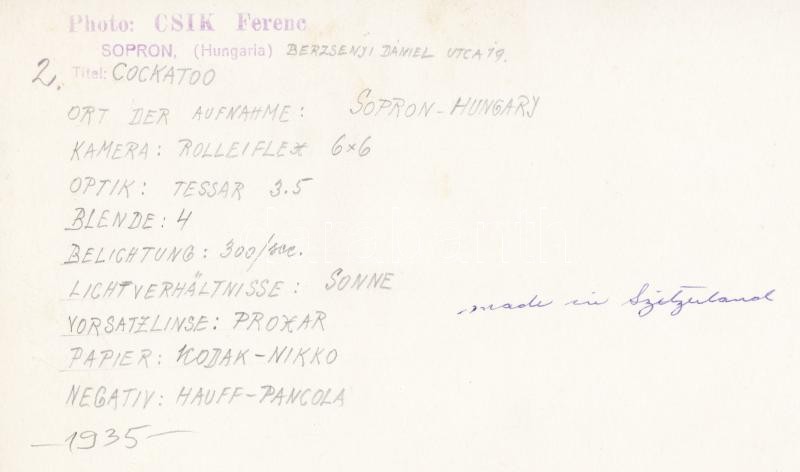 Photo: CSIK Ferenc
SOPRON, (Hungaria) BERZSENJI DÁNIEL UTCA 19.
2. Titel: COCKATOO
ORT DER AUFNAHME: SOPRON-HUNGARY
KAMERA: ROLLEIFLEX 6×6
OPTIK: TESSAR 3.5
BLENDE: 4
BELICHTUNG: 300/sec.
LICHTVERHÄLTNISSE: SONNE
made in Szitzerland
VORSATZLINSE: PROXAR
PAPIER: KODAK-NIKKO
NEGATIV: HAUFF-PANCOLA
—1935—